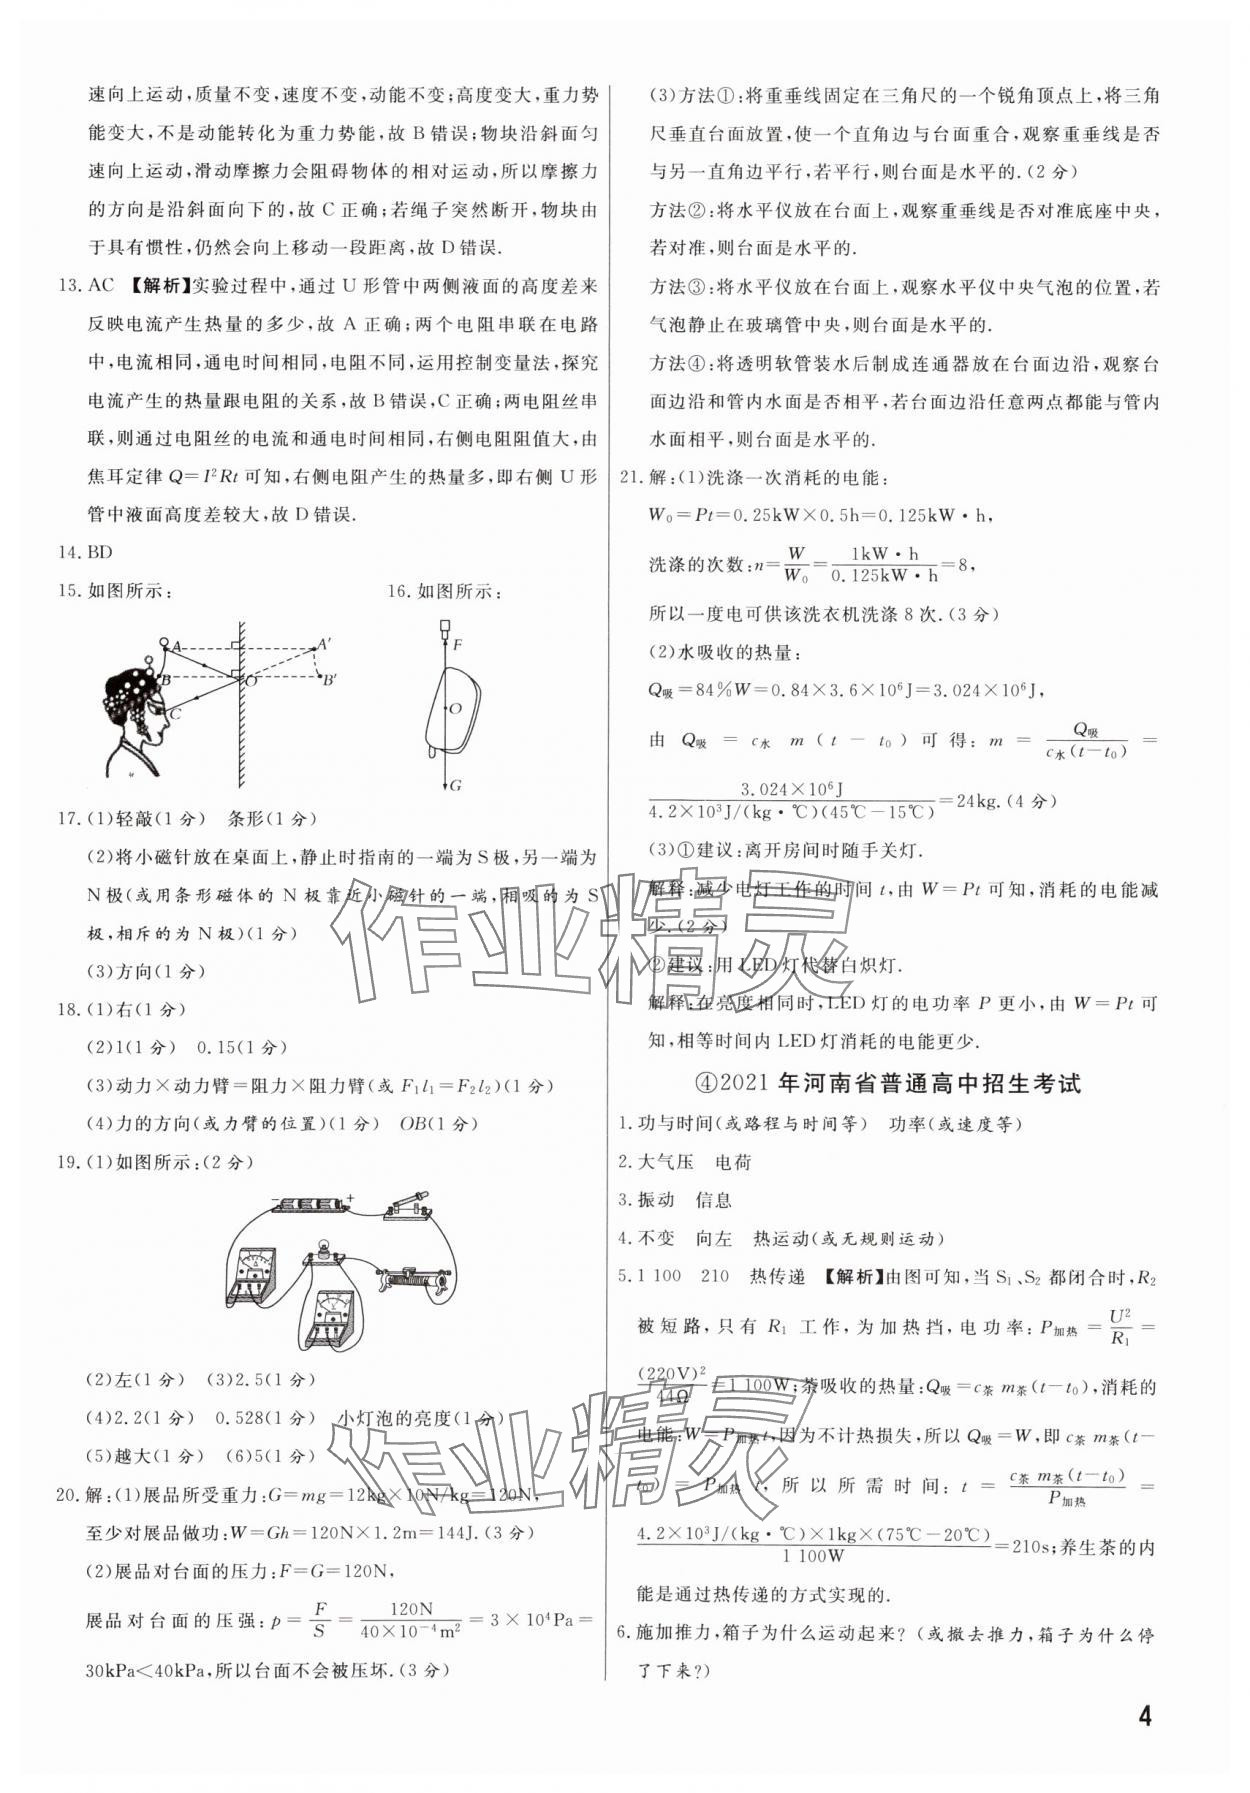 速向上运动,质量不变,速度不变,动能不变;高度变大,重力势
能变大,不是动能转化为重力势能,故 B 错误;物块沿斜面匀
速向上运动,滑动摩擦力会阻碍物体的相对运动,所以摩擦力
的方向是沿斜面向下的,故 C 正确;若绳子突然断开,物块由
于具有惯性,仍然会向上移动一段距离,故 D 错误.
13. AC 【解析】实验过程中,通过 U 形管中两侧液面的高度差来
反映电流产生热量的多少,故 A 正确;两个电阻串联在电路
中,电流相同,通电时间相同,电阻不同,运用控制变量法,探究
电流产生的热量跟电阻的关系,故 B 错误,C 正确;两电阻丝串
联,则通过电阻丝的电流和通电时间相同,右侧电阻阻值大,由
焦耳定律 Q=I²Rt 可知,右侧电阻产生的热量多,即右侧 U 形
管中液面高度差较大,故 D 错误.
14. BD
15. 如图所示: 16. 如图所示:
A A′
B O B′
C
F
O
G
17. (1)轻敲(1 分) 条形(1 分)
(2)将小磁针放在桌面上,静止时指南的一端为 S 极,另一端为
N 极(或用条形磁体的 N 极靠近小磁针的一端,相吸的为 S
极,相斥的为 N 极)(1 分)
(3)方向(1 分)
18. (1)右(1 分)
(2)1(1 分) 0.15(1 分)
(3)动力×动力臂=阻力×阻力臂(或 F₁l₁=F₂l₂)(1 分)
(4)力的方向(或力臂的位置)(1 分) OB(1 分)
19. (1)如图所示:(2 分)
− +
A
V
(2)左(1 分) (3)2.5(1 分)
(4)2.2(1 分) 0.528(1 分) 小灯泡的亮度(1 分)
(5)越大(1 分) (6)5(1 分)
20. 解:(1)展品所受重力:G=mg=12kg×10N/kg=120N,
至少对展品做功:W=Gh=120N×1.2m=144J.(3 分)
(2)展品对台面的压力:F=G=120N,
展品对台面的压强:p=F/S=120N/(40×10⁻⁴m²)=3×10⁴Pa=
30kPa<40kPa,所以台面不会被压坏.(3 分)
(3)方法①:将重垂线固定在三角尺的一个锐角顶点上,将三角
尺垂直台面放置,使一个直角边与台面重合,观察重垂线是否
与另一直角边平行,若平行,则台面是水平的.(2 分)
方法②:将水平仪放在台面上,观察重垂线是否对准底座中央,
若对准,则台面是水平的.
方法③:将水平仪放在台面上,观察水平仪中央气泡的位置,若
气泡静止在玻璃管中央,则台面是水平的.
方法④:将透明软管装水后制成连通器放在台面边沿,观察台
面边沿和管内水面是否相平,若台面边沿任意两点都能与管内
水面相平,则台面是水平的.
21. 解:(1)洗涤一次消耗的电能:
W₀=Pt=0.25kW×0.5h=0.125kW·h,
洗涤的次数:n=W/W₀=1kW·h/0.125kW·h=8,
所以一度电可供该洗衣机洗涤 8 次.(3 分)
(2)水吸收的热量:
Q吸=84%W=0.84×3.6×10⁶J=3.024×10⁶J,
由 Q吸=c水 m(t−t₀)可得:m=Q吸/c水(t−t₀)=
3.024×10⁶J/4.2×10³J/(kg·℃)(45℃−15℃)=24kg.(4 分)
(3)①建议:离开房间时随手关灯.
解释:减少电灯工作的时间 t,由 W=Pt 可知,消耗的电能减
少.(2 分)
②建议:用 LED 灯代替白炽灯.
解释:在亮度相同时,LED 灯的电功率 P 更小,由 W=Pt 可
知,相等时间内 LED 灯消耗的电能更少.
④2021 年河南省普通高中招生考试
1. 功与时间(或路程与时间等) 功率(或速度等)
2. 大气压 电荷
3. 振动 信息
4. 不变 向左 热运动(或无规则运动)
5. 1 100 210 热传递 【解析】由图可知,当 S₁、S₂ 都闭合时,R₂
被短路,只有 R₁ 工作,为加热挡,电功率:P加热=U²/R₁=
(220V)²/44Ω=1 100W;茶吸收的热量:Q吸=c茶 m茶(t−t₀),消耗的
电能:W=P加热t,因为不计热损失,所以 Q吸=W,即 c茶 m茶(t−
t₀)=P加热 t,所以所需时间:t=c茶 m茶(t−t₀)/P加热=
4.2×10³J/(kg·℃)×1kg×(75℃−20℃)/1 100W=210s;养生茶的内
能是通过热传递的方式实现的.
6. 施加推力,箱子为什么运动起来?(或撤去推力,箱子为什么停
了下来?)
4
作业精灵
作业精灵